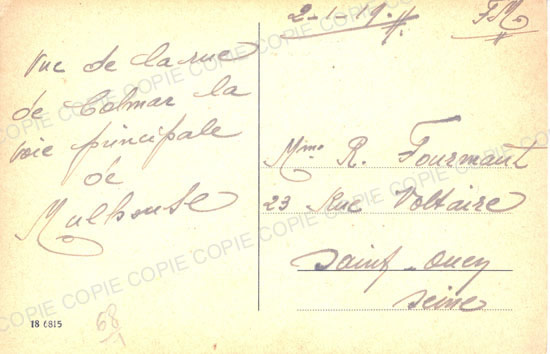 2-1-19. F.M.
Vue de la rue
de Colmar la
voie principale
de
Mulhouse
Mme R. Fourmaut
23 Rue Voltaire
Saint-Ouen
Seine
18 6815
68
COPIE COPIE COPIE COPIE COPIE COPIE